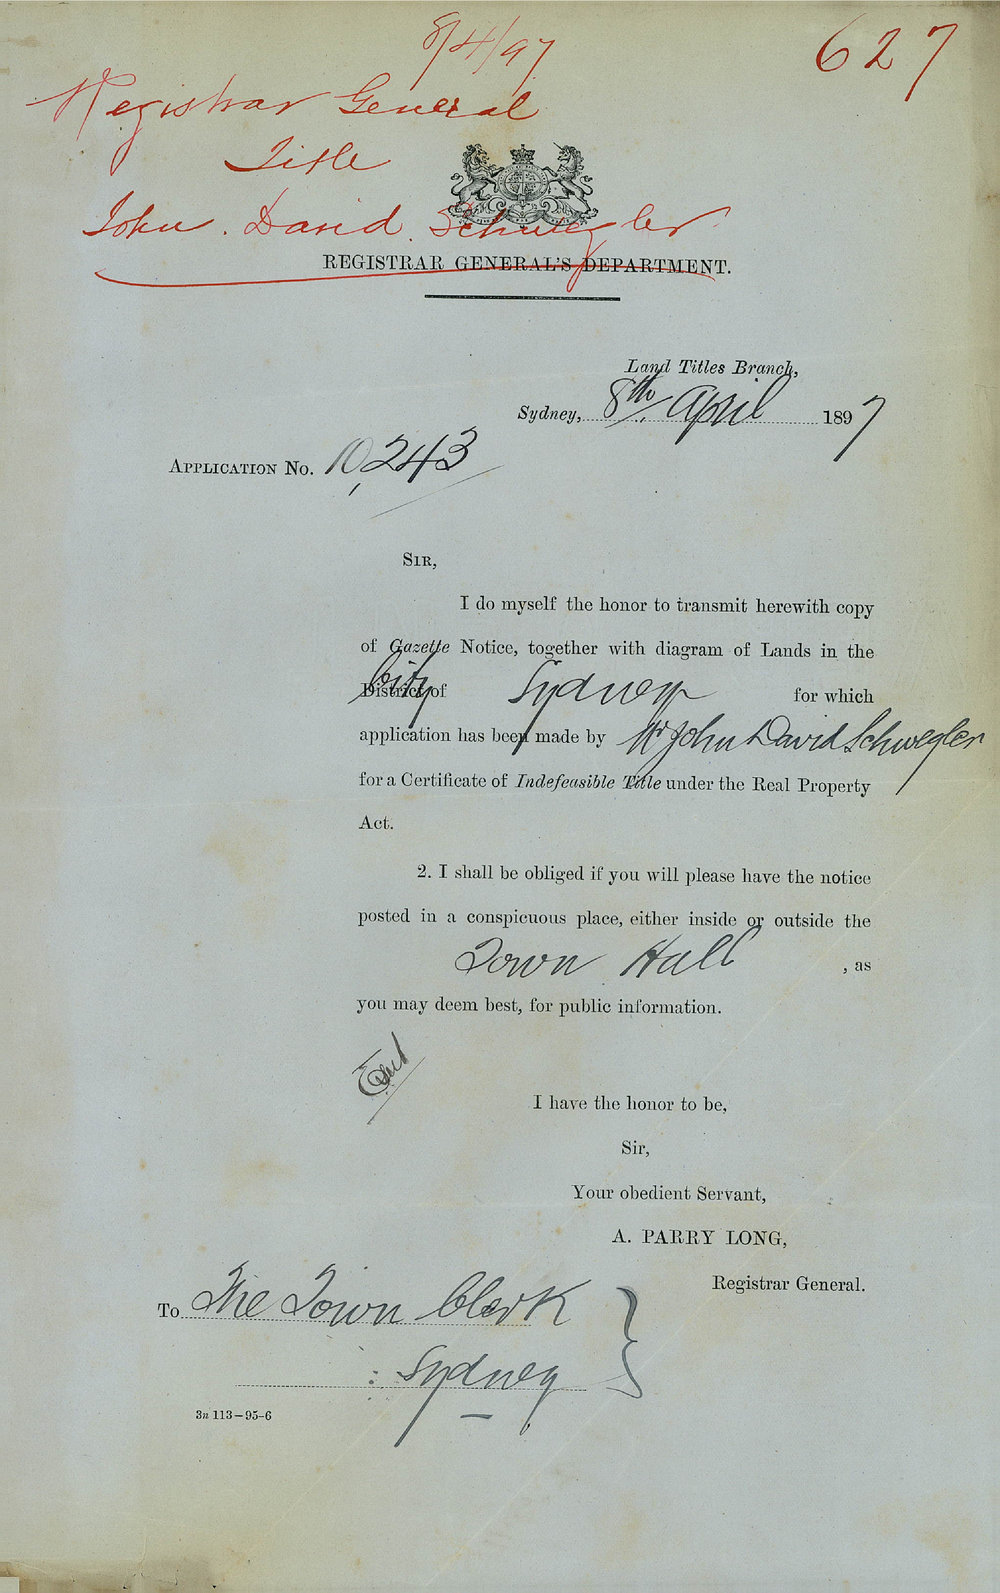 8/4/97
627
Registrar General
Title
John David Schwegler
REGISTRAR GENERAL'S DEPARTMENT.
Land Titles Branch,
Sydney, 8th April 1897
APPLICATION No. 10,243
SIR,
I do myself the honor to transmit herewith copy
of Gazette Notice, together with diagram of Lands in the
City
District of Sydney for which
application has been made by Mr John David Schwegler
for a Certificate of Indefeasible Title under the Real Property
Act.
2. I shall be obliged if you will please have the notice
posted in a conspicuous place, either inside or outside the
Town Hall , as
you may deem best, for public information.
I have the honor to be,
Sir,
Your obedient Servant,
A. PARRY LONG,
Registrar General.
To The Town Clerk
Sydney
3n 113–95–6